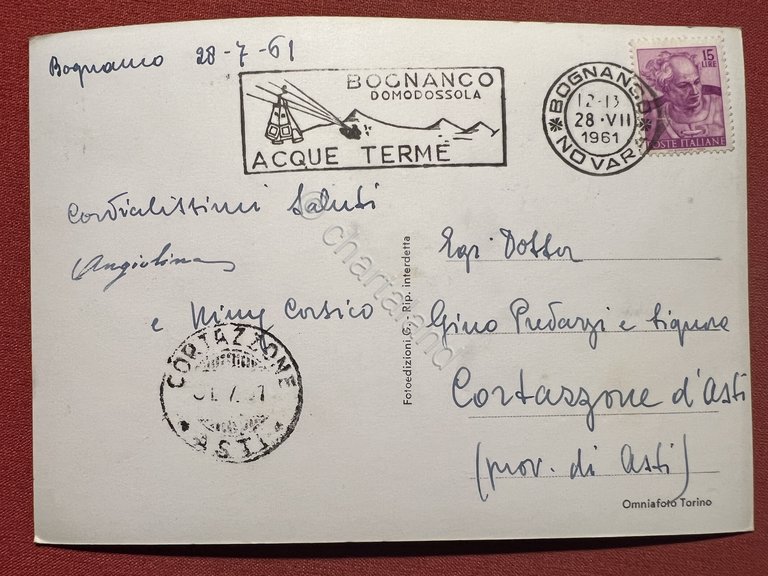 Bognanco 28-7-61
BOGNANCO
DOMODOSSOLA
ACQUE TERME
BOGNANCO
12-13
28·VII
1961
NOVARA
15
LIRE
POSTE ITALIANE
Cordialissimi saluti
Angiolina
e Niny Corsico
CORTAZZONE
31.7.61
ASTI
© chartaland
Fotoedizioni G. - Rip. interdetta
Egr. Dottor
Gino Predazzi e Signora
Cortazzone d'Asti
(prov. di Asti)
Omniafoto Torino